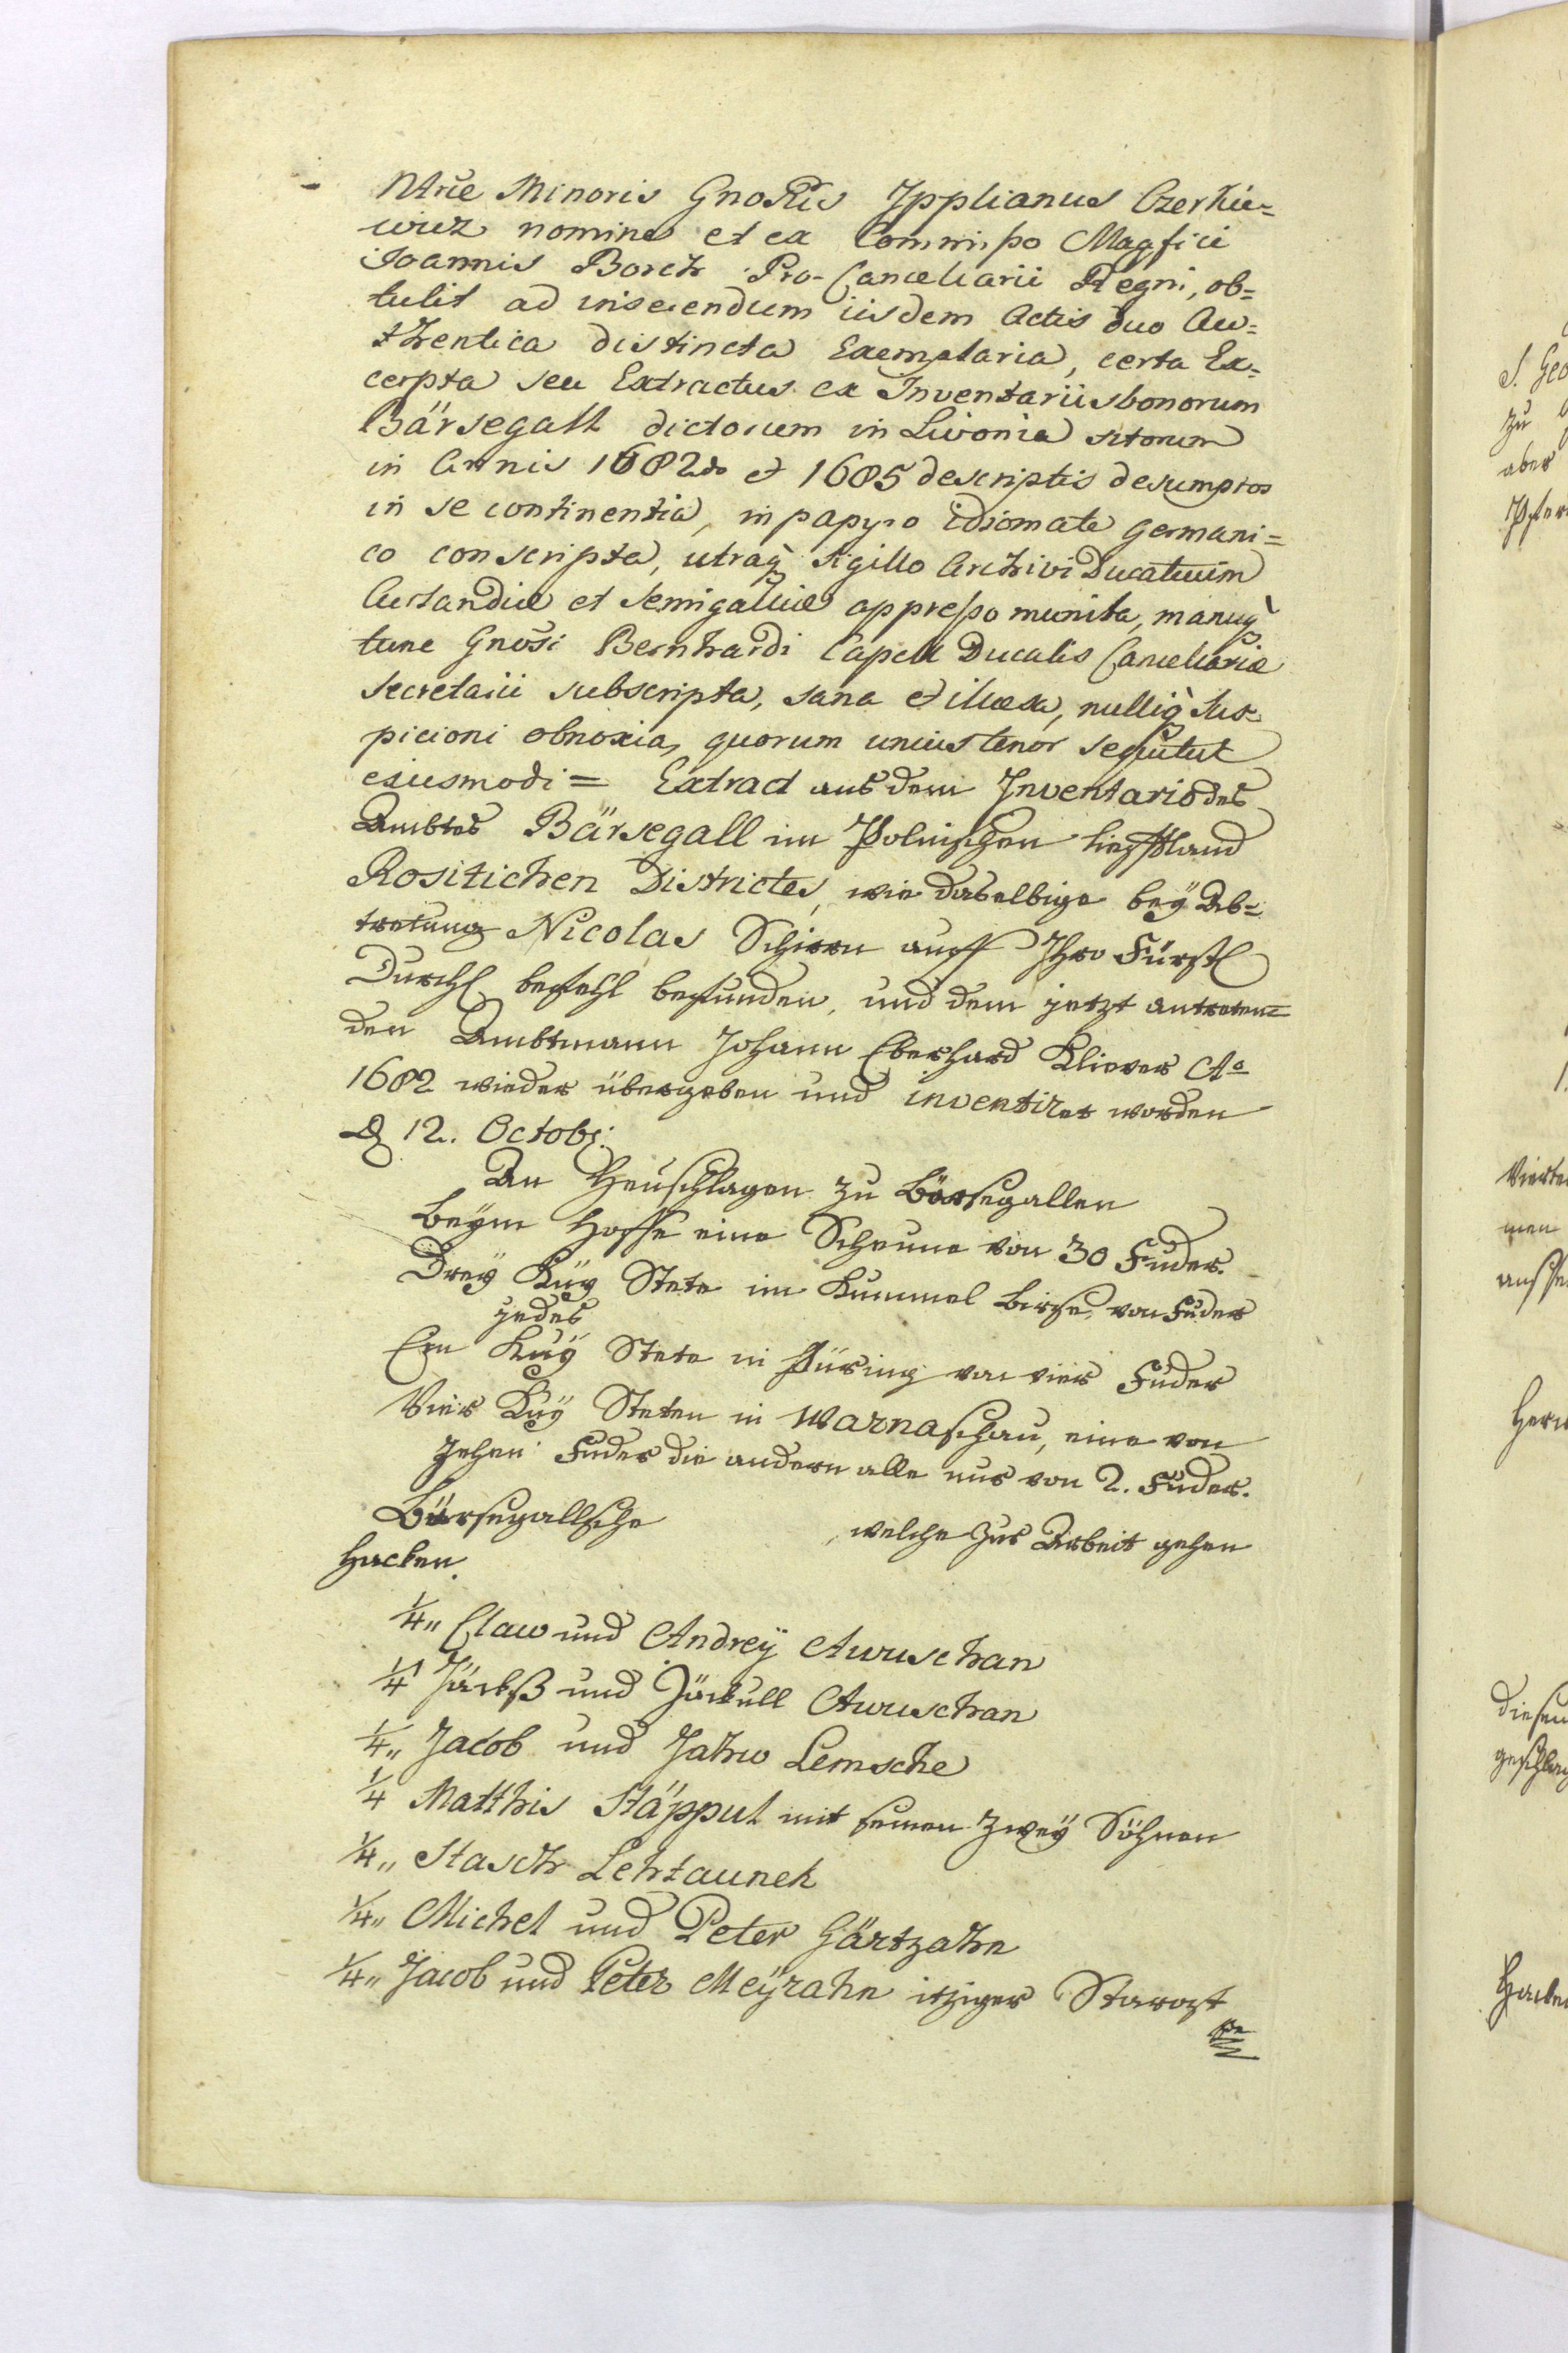 Ntrie Minoris GnoRis Ipplianus Czerkie=
wicz nomine et ex Commisso Magfici
Joannis Borch Pro-Cancellarii Regni, ob=
tulit ad inserendum iisdem Actis duo Au=
thentica distincta Exemplaria, certa Ex=
cerpta seu Extractus ex Inventariis bonorum
Bärsegall dictorum in Livonia sitorum
in Annis 1682do et 1685 descriptis desumptos
in se continentia, in papyro idiomate germani=
co conscripta, utraq sigillo Archivi Ducatuum
Curlandiæ et Semigalliæ appresso munita, manuq
tune Gnosi Bernhardi Capell Ducalis Cancellariæ
Secretarii subscripta, sana et illæsa, nulliq sus
picioni obnoxia, quorum unius tenor sequitur
eiusmodi = Extract aus dem Inventario des
Ambtes Bärsegall im Polnischen Liefland
Rositichen Districtes, wie dasselbige beÿ Ab=
tretung Nicolas Schirrn auff Ihro Fürstl
Durchl befehl befunden, und dem jetzt antreten=
den Ambtmann Johann Eberhard Kliever Ao
1682 wieder übergeben und inventiret worden
D 12. Octobr:
An Heuschlagen zu Bärsegallen
Beÿm Hoffe eine Scheune von 30 Fuder.
Dreÿ Kuÿ Stete im Kummel Birse, von Fuder
jedes
Ein Kuÿ Stete in Püring von vier Fuder
Vier Kuÿ Steten in Warnaschau, eine von
Zehen Fuder die andern alle nur von 2. Fuder.
Bärsegallsche , welche zur Arbeit gehen
Hacken.
1/4 " Claw und Andreÿ Awuschan
1/4 " Jäckß und Jäckull Awuschan
1/4 " Jacob und Jahw Lemsche
1/4 Matthis Stäppul mit seinen zweÿ Söhnen
1/4 " Stasch Lehtaunek
1/4 " Michel und Peter Gärtzahn
1/4 " Jacob und Peter Meÿrahn itziger Starost